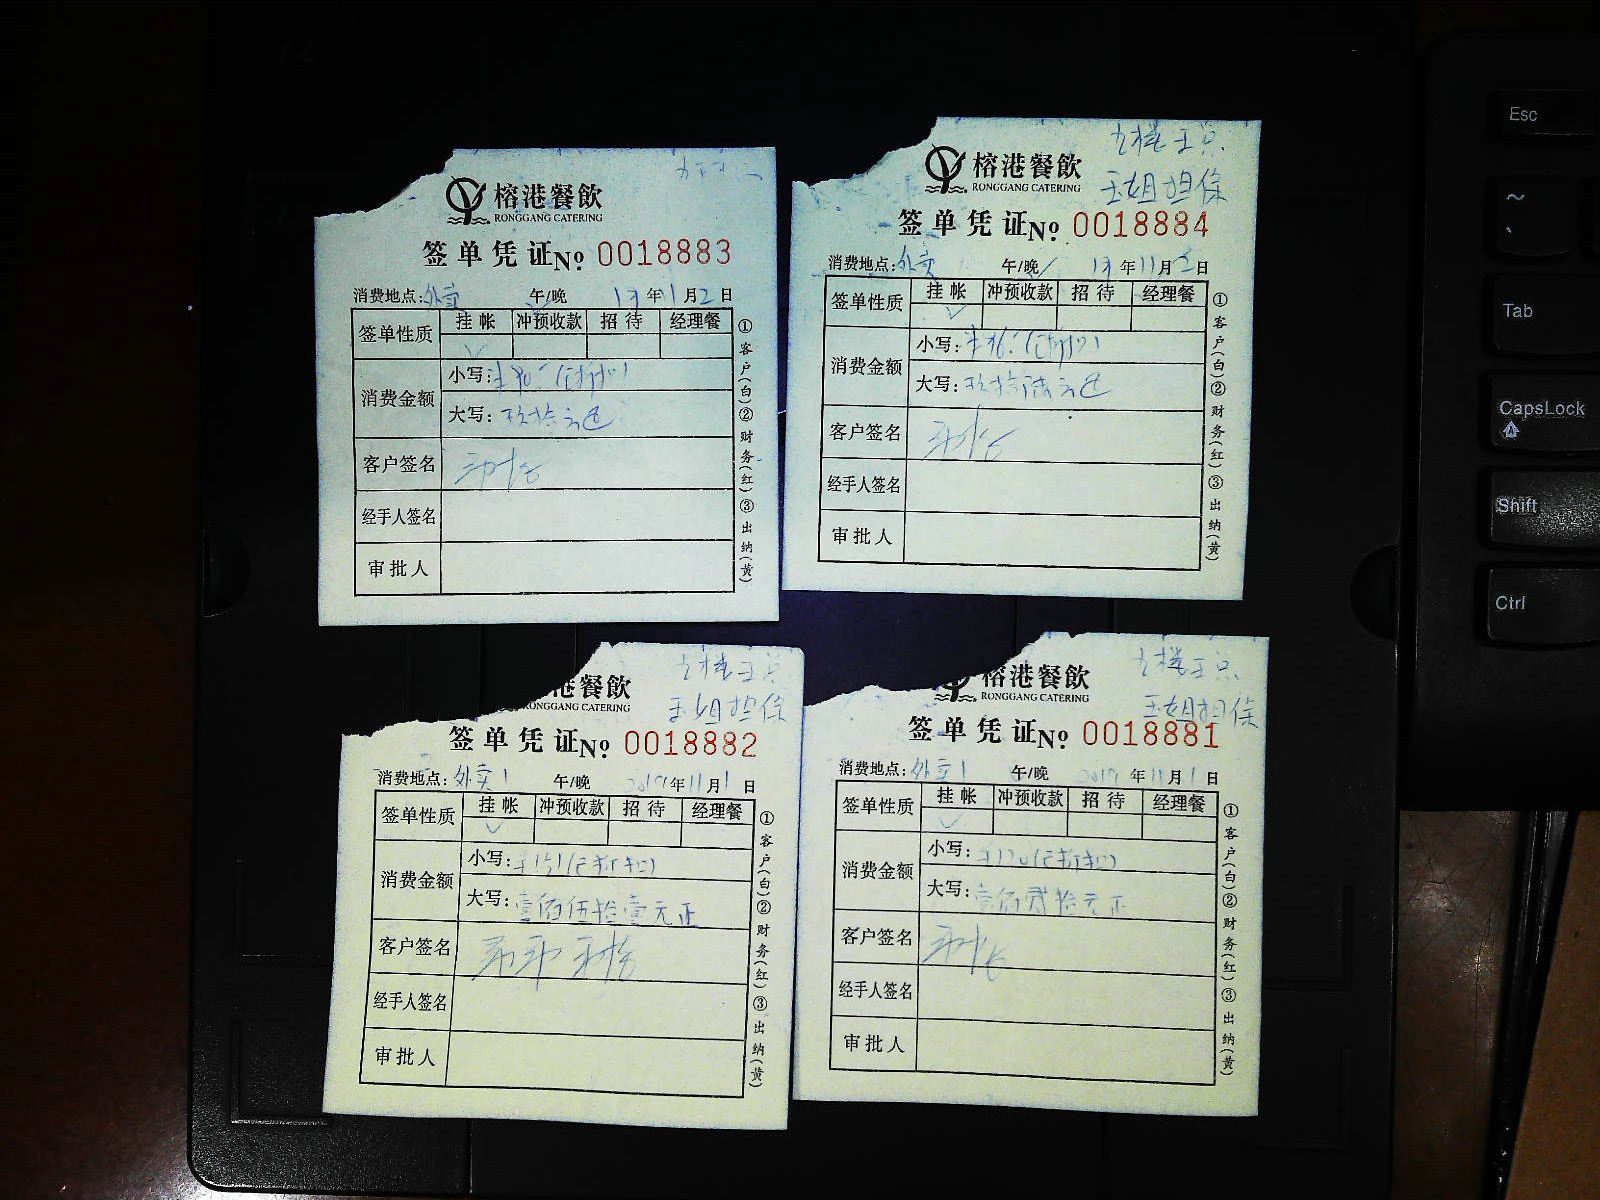 榕港餐飲
RONGGANG CATERING
签单凭证№ 0018883
消费地点:外卖 午/晚 19年11月2日
签单性质 挂帐 冲预收款 招待 经理餐
消费金额 小写:¥90
大写:玖拾元正
客户签名
经手人签名
审批人
①客户(白)②财务(红)③出纳(黄)
五楼王总
王姐担保
榕港餐飲
RONGGANG CATERING
签单凭证№ 0018884
消费地点:外卖 午/晚 19年11月2日
签单性质 挂帐 冲预收款 招待 经理餐
消费金额 小写:¥96
大写:玖拾陆元正
客户签名
经手人签名
审批人
①客户(白)②财务(红)③出纳(黄)
五楼王总
港餐飲
RONGGANG CATERING
王姐担保
签单凭证№ 0018882
消费地点:外卖1 午/晚 2019年11月1日
签单性质 挂帐 冲预收款 招待 经理餐
消费金额 小写:¥151(已折扣)
大写:壹佰伍拾壹元正
客户签名
经手人签名
审批人
①客户(白)②财务(红)③出纳(黄)
五楼王总
榕港餐飲
RONGGANG CATERING
王姐担保
签单凭证№ 0018881
消费地点:外卖1 午/晚 2019年11月1日
签单性质 挂帐 冲预收款 招待 经理餐
消费金额 小写:¥120(已折扣)
大写:壹佰贰拾元正
客户签名
经手人签名
审批人
①客户(白)②财务(红)③出纳(黄)
Esc
~
Tab
CapsLock
Shift
Ctrl